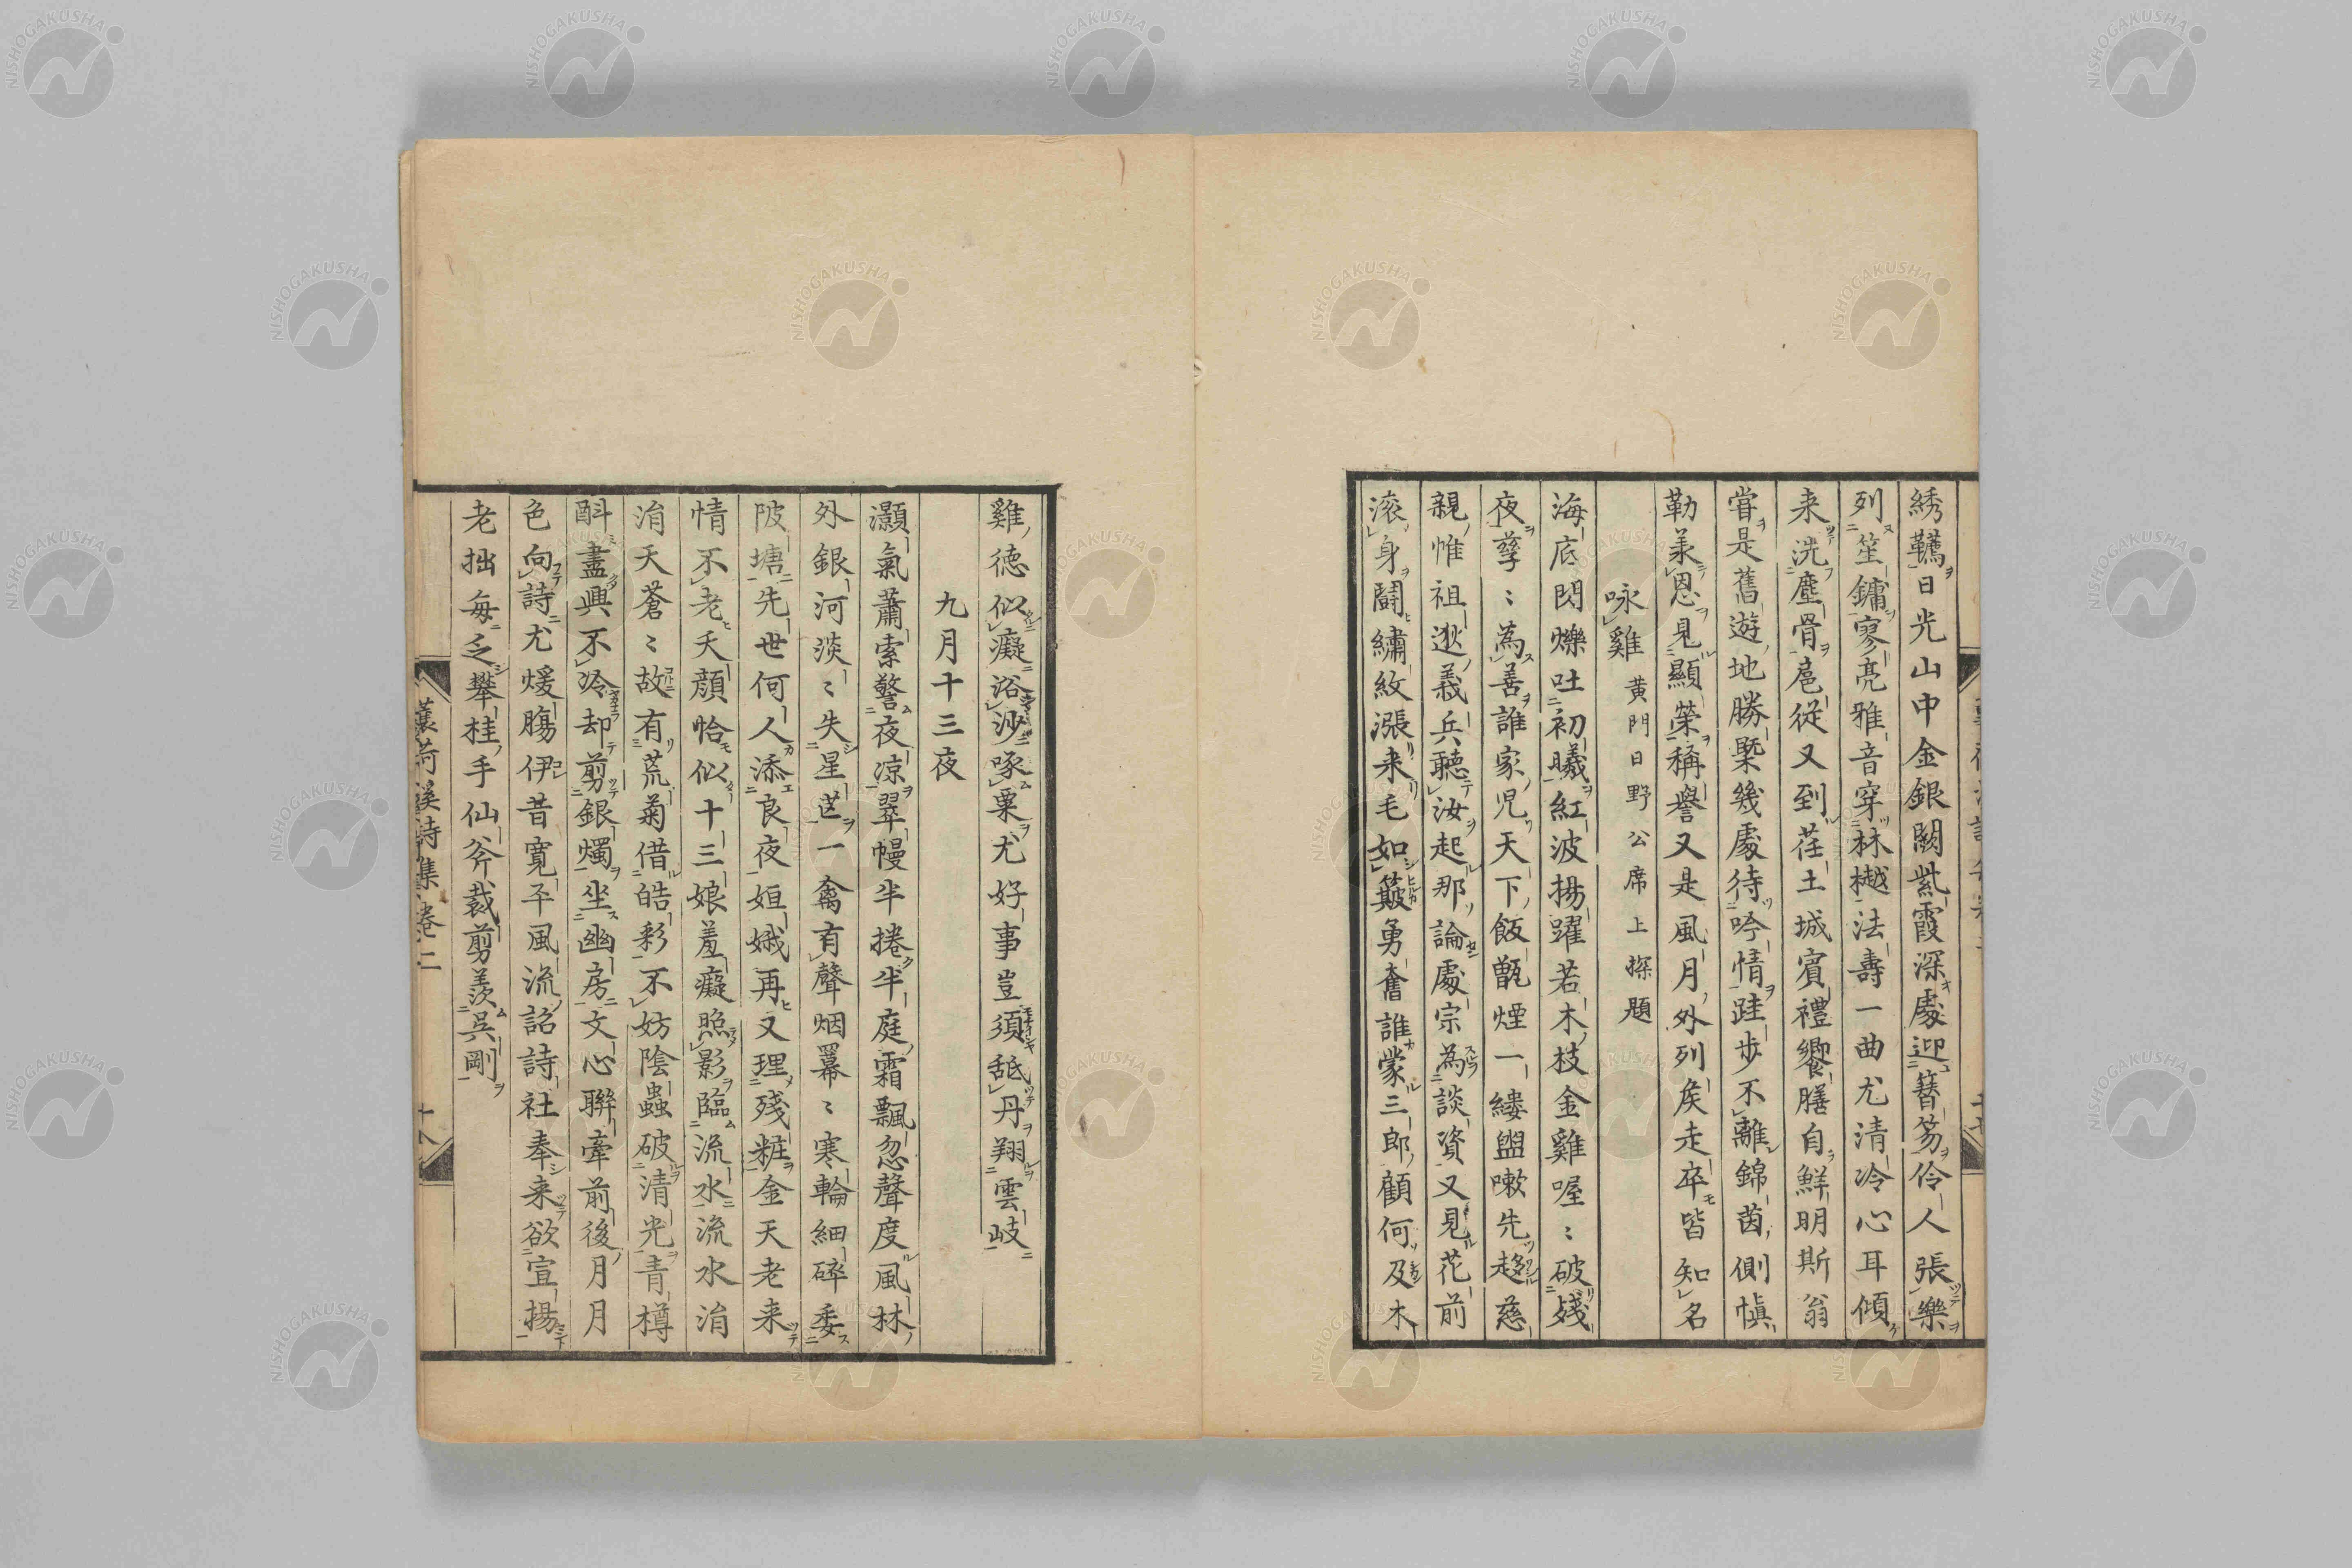 綉韉日光山中金銀闕紫霞深處迎簪笏伶人張樂
列笙鏞寥亮雅音穿林樾法壽一曲尤清冷心耳傾
来洗塵骨扈從又到荏土城賓禮饗膳自鮮明斯翁
嘗是舊遊地勝槩幾處待吟情跬步不離錦茵側愼
勤羕恩見顯榮稱譽又是風月外列矦走卒皆知名
咏雞 黄門日野公席上探題
海底閃爍吐初曦紅波揚躍若木枝金雞喔〻破殘
夜孳〻為善誰家児天下飯甑煙一縷盥嗽先趍慈
親帷祖逖義兵聽汝起那論處宗為談資又見花前
滚身鬪繍紋漲来毛如簸勇奮誰蒙三郎顧何及木
雞德似癡浴沙啄粟尤好事豈須舐丹翔雲岐
九月十三夜
灝氣蕭索警夜凉翠幔半捲半庭霜飄忽聲度風林
外銀河淡〻失星芒一禽有聲烟羃〻寒輪細碎委
陂塘先世何人添良夜姮娥再又理殘粧金天老来
情不老夭顔恰似十三娘羞癡照影臨流水流水涓
涓天蒼〻故有荒菊借皓彩不妨陰蟲破清光青樽
酙盡興不冷却剪銀燭坐幽房文心聯牽前後月月
色向詩尤煖膓伊昔寛平風流詔詩社奉来欲宣揚
老拙每乏攀桂手仙斧裁剪羨呉剛
蓑荷溪詩集卷二
十八